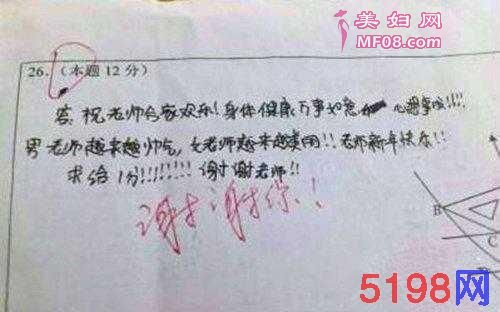 美妇网
MF08.com
26.(本题12分)
答:祝老师合家欢乐!身体健康,万事如意 心想事成!!!!
男老师越来越帅气,女老师越来越美丽!!老师新年快乐!!
求给1分!!!!!!!!谢谢老师!!
谢谢你!!
B
C
5198网